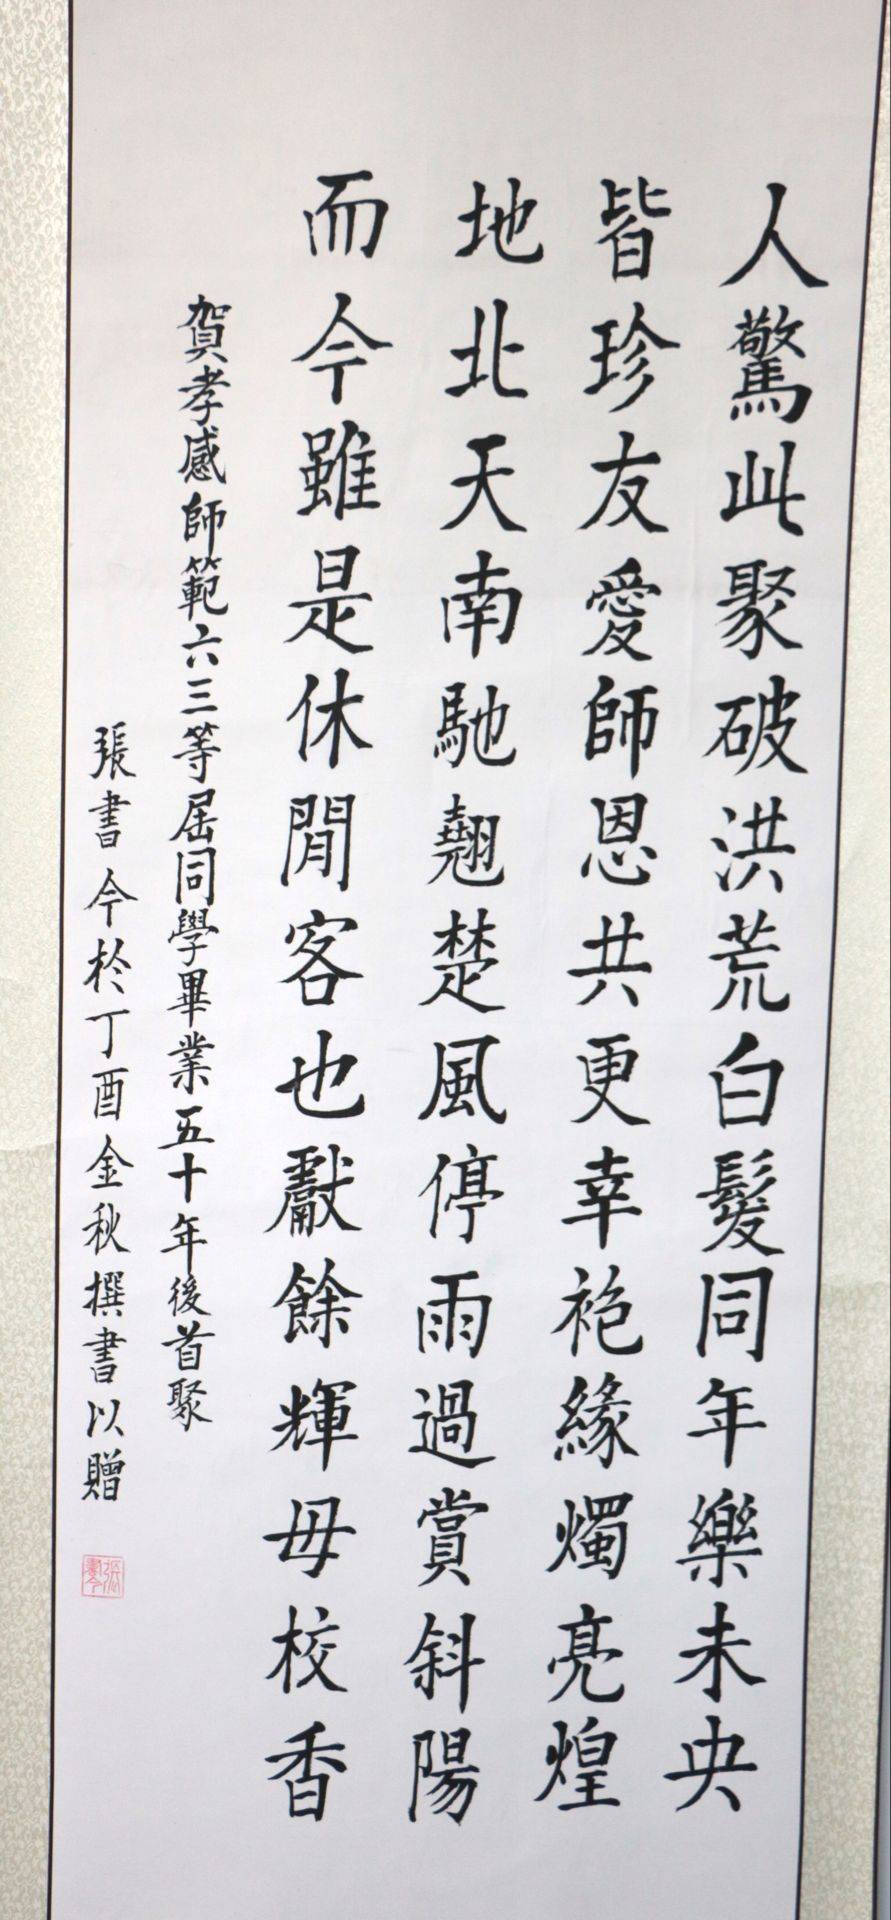 人驚此聚破洪荒白髮同年樂未央
皆珍友愛師恩共更幸袍緣燭亮煌
地北天南馳翹楚風停雨過賞斜陽
而今雖是休閒客也獻餘輝母校香
賀孝感師範六三等屆同學畢業五十年後首聚
張書今於丁酉金秋撰書以贈
張書今